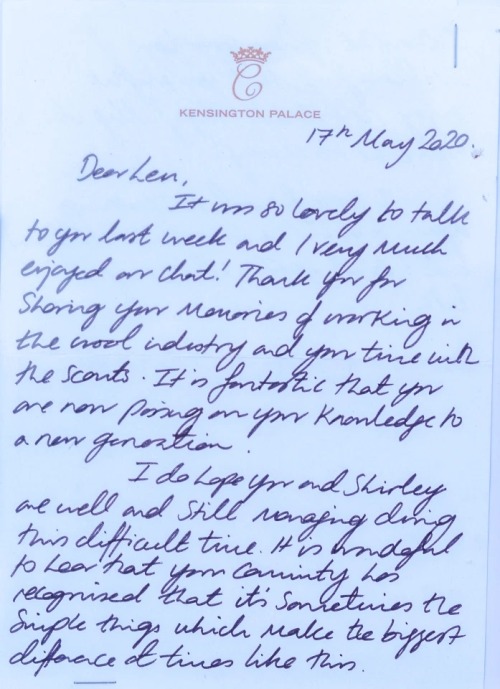 C
KENSINGTON PALACE
17th May 2020.
Dear Len,
It was so lovely to talk
to you last week and I very much
enjoyed our chat! Thank you for
Sharing your memories of working in
the wool industry and your time with
the Scouts. It is fantastic that you
are now passing on your knowledge to
a new generation.
I do hope you and Shirley
are well and still managing during
this difficult time. It is wonderful
to hear that your community has
recognised that it's sometimes the
simple things which make the biggest
difference at times like this.